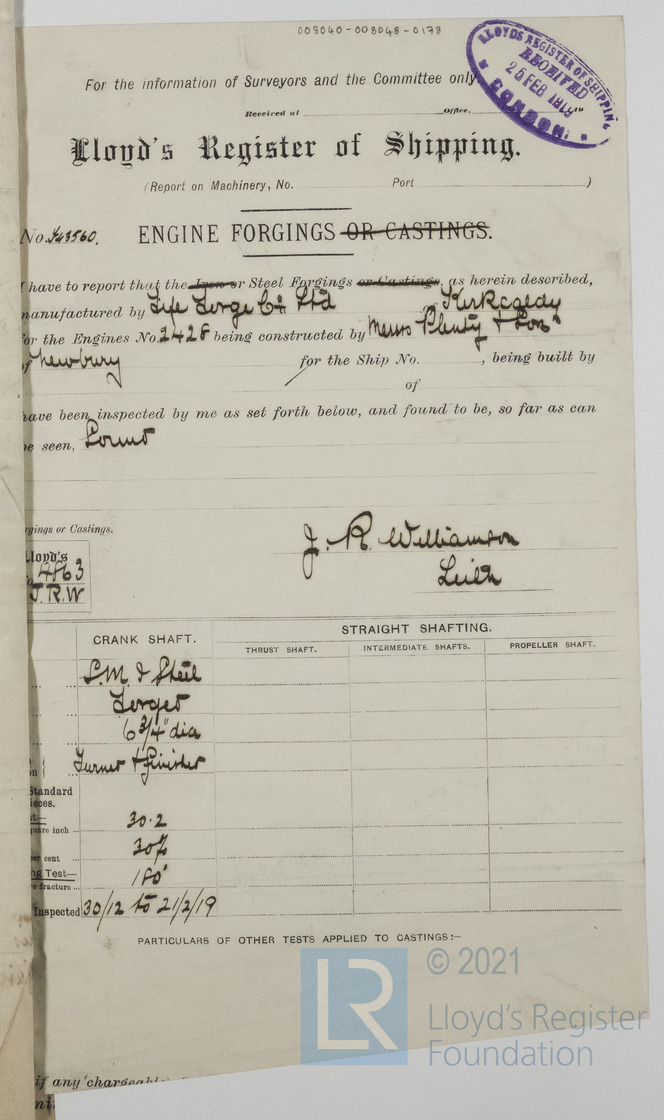 008040-008048-0178
For the information of Surveyors and the Committee only
LLOYDS REGISTER OF SHIPPING
RECEIVED
25 FEB 1919
LONDON.
Received at Office,
Lloyd's Register of Shipping.
(Report on Machinery, No. Port )
No. 43560. ENGINE FORGINGS OR CASTINGS.
I have to report that the Iron or Steel Forgings or Castings as herein described,
manufactured by Fife Forge Co Ltd of Kirkcaldy
for the Engines No. 2428 being constructed by Messrs Plenty & Son
of Newbury for the Ship No. , being built by
of
have been inspected by me as set forth below, and found to be, so far as can
be seen, Sound
rgings or Castings.
J. R. Williamson
Leith
Lloyd's
4863
J.R.W
CRANK SHAFT. STRAIGHT SHAFTING.
THRUST SHAFT. INTERMEDIATE SHAFTS. PROPELLER SHAFT.
S.M. I Steel
Forged
6 3/4" dia
Turned & finished
Standard
ieces.
30.2
uare inch
30%
per cent
ng Test—
180°
o fracture
Inspected 30/12 to 21/2/19
PARTICULARS OF OTHER TESTS APPLIED TO CASTINGS:—
© 2021
LR Lloyd's Register
Foundation
if any chargeable